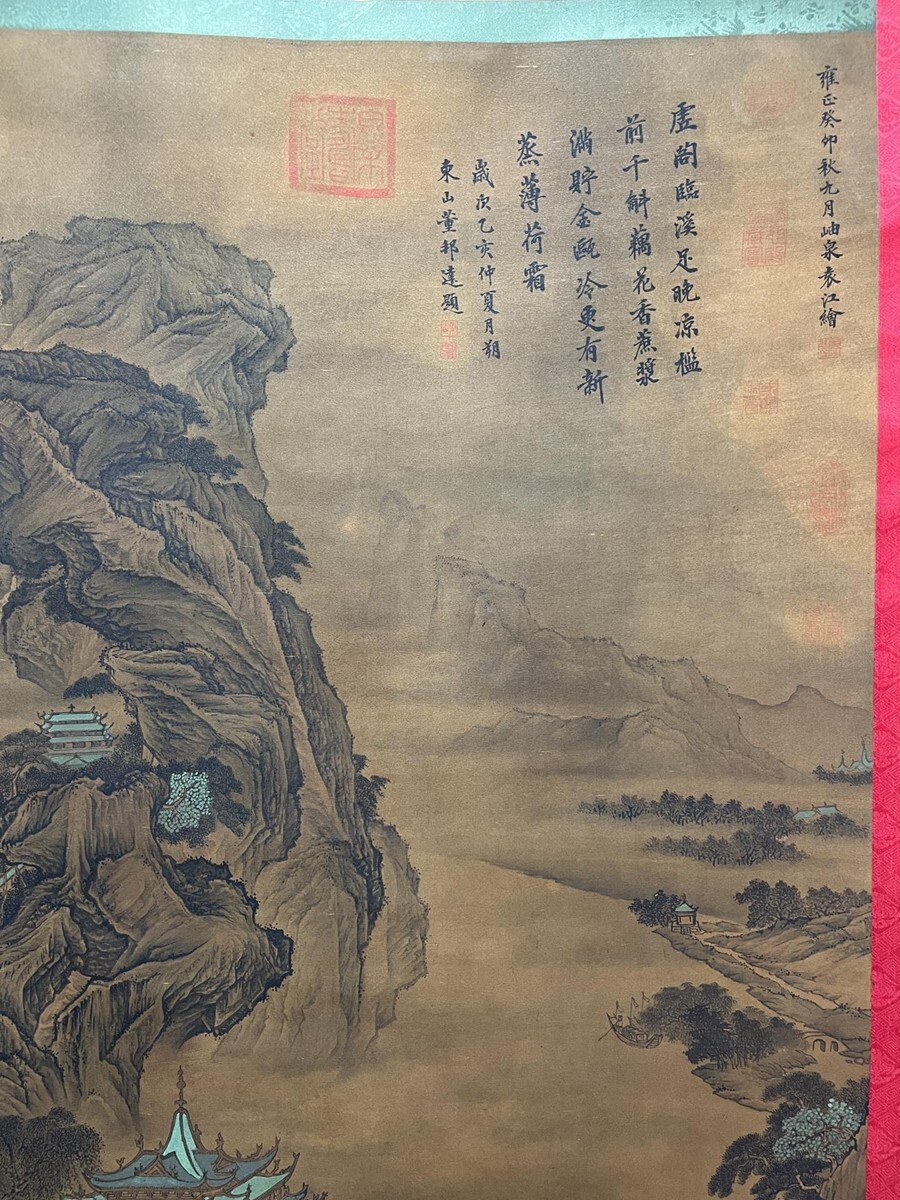 雍正癸卯秋九月岫泉袁江繪
虚閣臨溪足晚凉檻
前千斛藕花香蔗漿
滿貯金甌冷更有新
蒸薄荷霜
歲次乙亥仲夏月朔
東山董邦達題